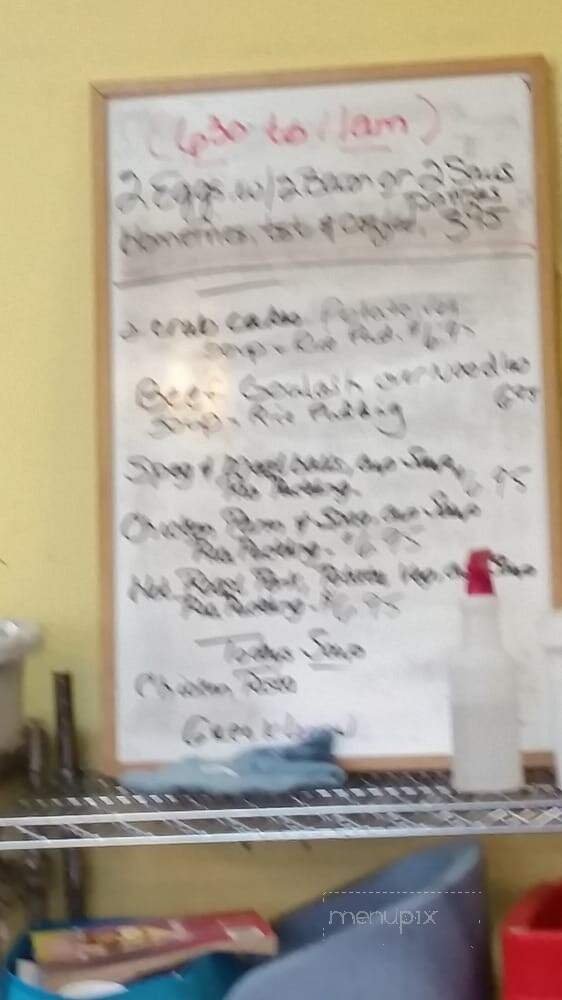 (630 to 11am)
2 Eggs w/ 2 Bacon or 2 Saus
Patties
Homefries, tst & Coffee, 3.95
2 crab cakes Potato, veg
soup - Rice Pud. $6.95
Beef Goulash over noodles
soup - Rice Pudding 6.95
Spag & Meatballs, cup Soup,
Rice Pudding. 6.95
Chicken Parm & Spag, cup Soup
Rice Pudding. $6.95
Hot Roast Pork, Potato, Veg, cup Soup
Rice Pudding. $6.95
Todays Soup
Chicken Rice
menupix